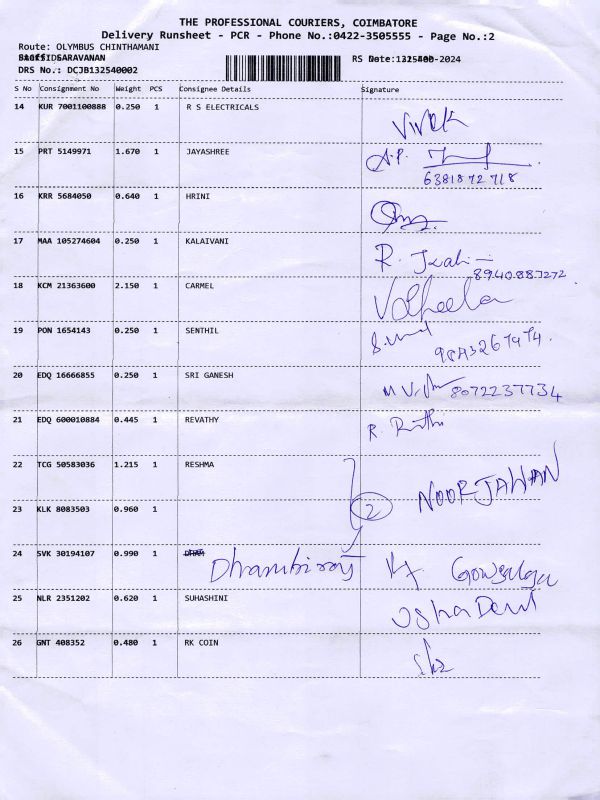 THE PROFESSIONAL COURIERS, COIMBATORE
Delivery Runsheet - PCR - Phone No.:0422-3505555 - Page No.:2
Route: OLYMBUS CHINTHAMANI
SARAVANAN RS -2024
DRS No.: DCJB132540002
S No Consignment No Weight PCS Consignee Details Signature
14 KUR 7001100888 0.250 1 R S ELECTRICALS Vivek
15 PRT 5149971 1.670 1 JAYASHREE A.P.
6381872718
16 KRR 5684050 0.640 1 HRINI
17 MAA 105274604 0.250 1 KALAIVANI R.
18 KCM 21363600 2.150 1 CARMEL
19 PON 1654143 0.250 1 SENTHIL
20 EDQ 16666855 0.250 1 SRI GANESH 8072237734
21 EDQ 600010884 0.445 1 REVATHY R.
22 TCG 50583036 1.215 1 RESHMA
23 KLK 8083503 0.960 1 2 NOORJAHAN
24 SVK 30194107 0.990 1 Dhambiraj
25 NLR 2351202 0.620 1 SUHASHINI
26 GNT 408352 0.480 1 RK COIN